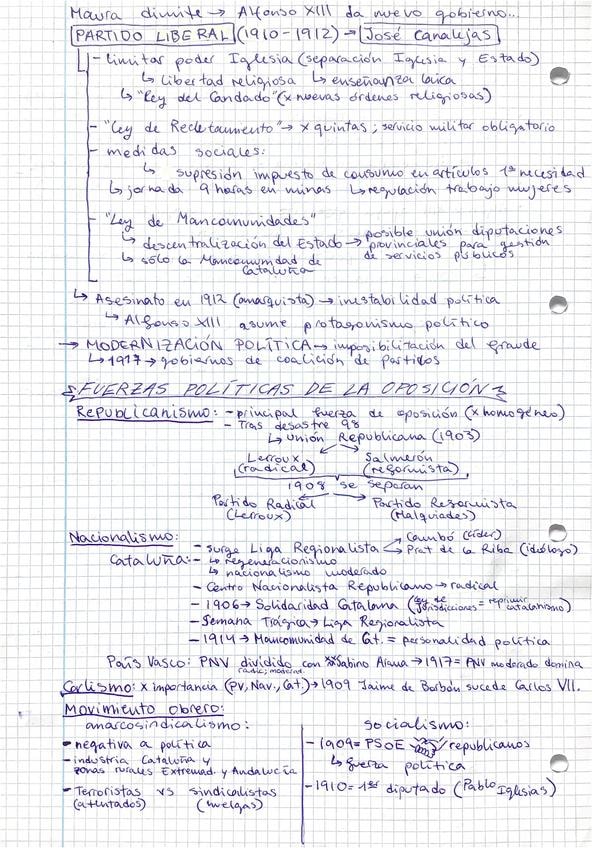 Maura dimite → Alfonso XIII da nuevo gobierno...
PARTIDO LIBERAL (1910-1912) → José Canalejas
- limitar poder Iglesia (separación Iglesia y Estado)
↳ libertad religiosa ↳ enseñanza laica
↳ "Ley del Candado" (x nuevas órdenes religiosas)
- "Ley de Reclutamiento" → x quintas; servicio militar obligatorio
- medidas sociales:
↳ supresión impuesto de consumo en artículos 1ª necesidad
↳ jornada 9 horas en minas ↳ regulación trabajo mujeres
- "Ley de Mancomunidades"
↳ descentralización del Estado → posible unión diputaciones provinciales para gestión de servicios públicos
↳ sólo la Mancomunidad de Cataluña
↳ Asesinato en 1912 (anarquista) → inestabilidad política
↳ Alfonso XIII asume protagonismo político
→ MODERNIZACIÓN POLÍTICA → imposibilitación del fraude
↳ 1917 → gobiernos de coalición de partidos
FUERZAS POLÍTICAS DE LA OPOSICIÓN
Republicanismo: - principal fuerza de oposición (x homogéneo)
- Tras desastre 98
↳ Unión Republicana (1903)
Lerroux (radical) Salmerón (reformista)
1908 se separan
Partido Radical (Lerroux) Partido Reformista (Malquiades)
Nacionalismo:
Cataluña: - surge Liga Regionalista Cambó (líder) Prat de la Riba (ideólogo)
↳ regeneracionismo
↳ nacionalismo moderado
- Centro Nacionalista Republicano → radical
- 1906 → Solidaridad Catalana (ley de jurisdicciones = reprimir catalanismo)
- Semana Trágica → Liga Regionalista
- 1914 → Mancomunidad de Cat. = personalidad política
País Vasco: PNV dividido con Sabino Arana → 1917 = PNV moderado domina
Carlismo: x importancia (PV, Nav., Cat.) → 1909 Jaime de Borbón sucede Carlos VII.
Movimiento obrero:
anarcosindicalismo:
- negativa a política
- industria Cataluña y zonas rurales Extremad. y Andalucía
- Terroristas vs sindicalistas
(atentados) (huelgas)
socialismo:
- 1909 = PSOE republicanos
↳ fuerza política
- 1910 = 1er diputado (Pablo Iglesias)